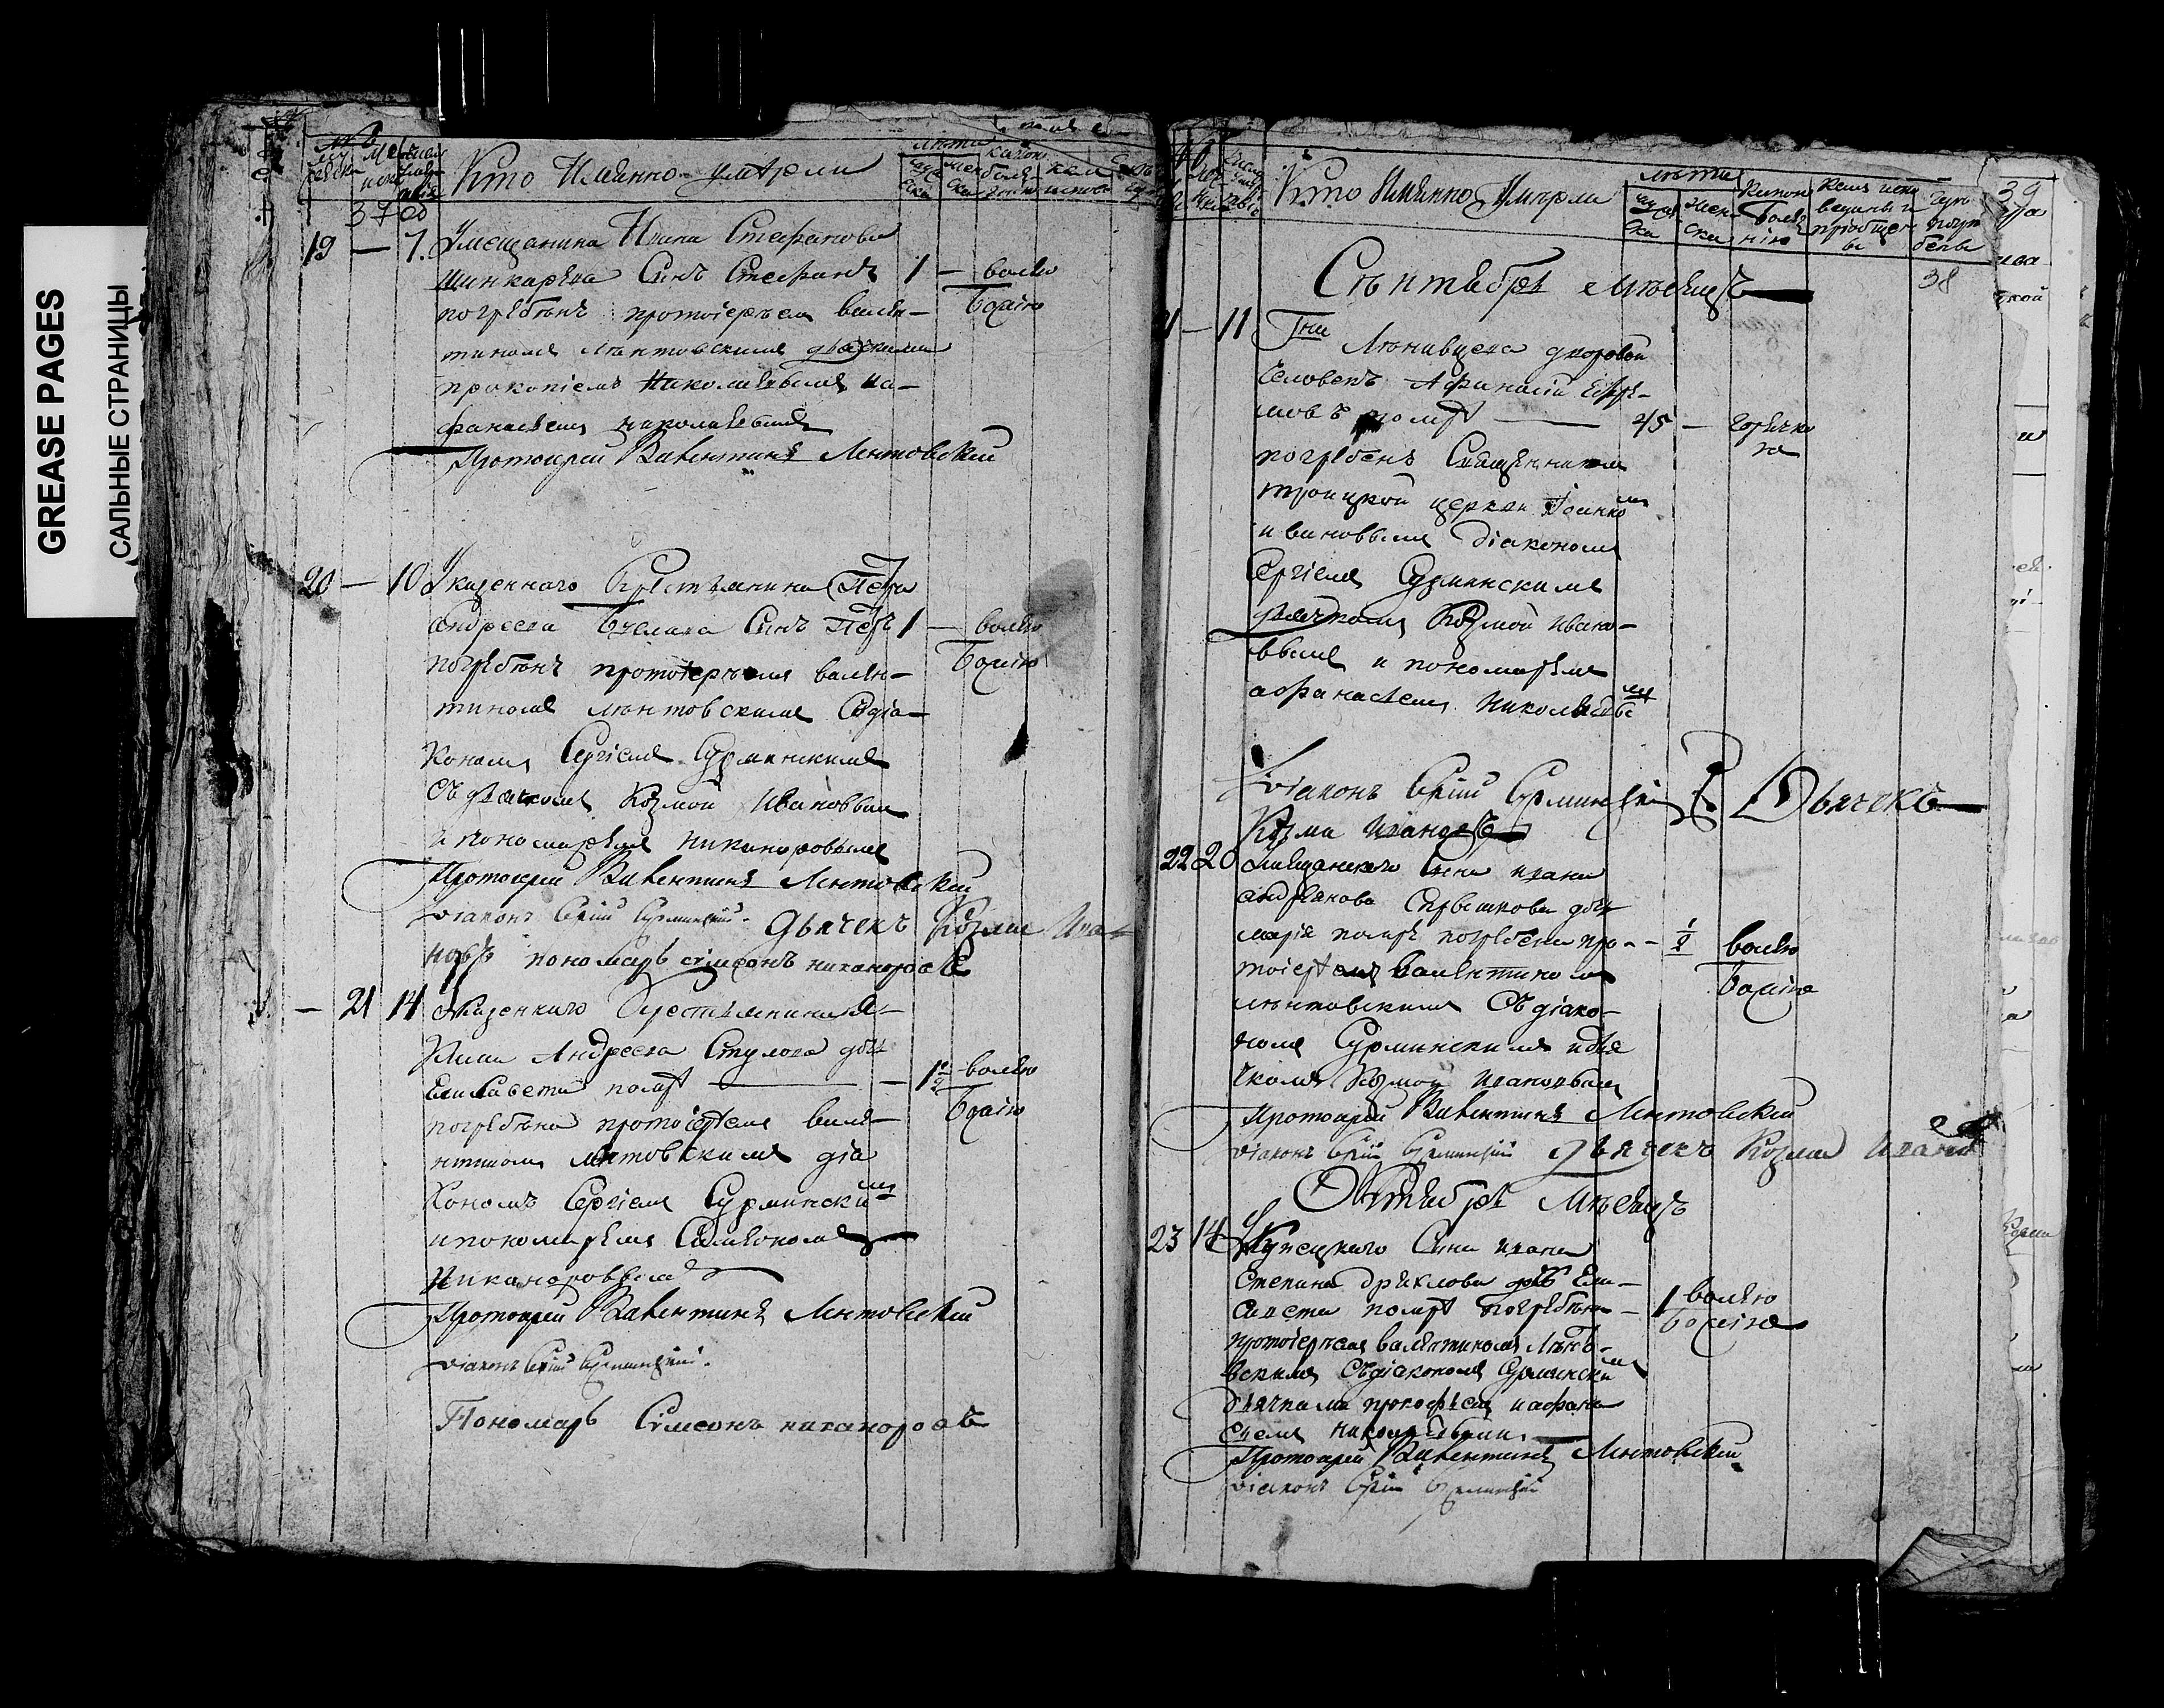 GREASE PAGES
САЛЬНЫЕ СТРАНИЦЫ
Кто Имянно умерли
лета
37
19 — 7. У мещанина Ивана Стефанова
Шинкарева Сынъ Стефанъ 1 — волею
погребѣнъ протоіереем вален- Божію
тиномъ лѣнтовскимъ дьячками
прокопіемъ Николаевымъ иа-
фанасіемъ николаевымъ
Протоіерей Валентинъ Лентовскій
20 — 10 У казеннаго Крестьянина Петра
Андреева Сынъ Петръ 1 — волею
погребѣнъ протоіереемъ вален- Божію
тиномъ лѣнтовскимъ Съдіа-
кономъ Сергіемъ Сурминскимъ
Съ дьячкомъ Козмой Ивановымъ
и пономаремъ никаноровымъ
Протоіерей Валентинъ Лентовскій
Діаконъ Сергій Сурминскій. Дьячекъ Козма Ива-
новъ пономарь симеонъ никаноровъ
— 21 14 У казеннаго Крестьянина
Андреева Стулова дочь
Елисавета помре — 1 1/2 волею
погребѣна протоіереемъ вале- Божію
нтиномъ лѣнтовскимъ діа
кономъ Сергіемъ Сурминскимъ
ипономаремъ Симеономъ
Никаноровымъ
Протоіерей Валентинъ Лентовскій
Діаконъ Сергій Сурминскій.
Пономарь Симеонъ никаноровъ
Кто Имянно Умерли
лета
38
Сѣнтябрь Мѣсяцъ
— 11 Гпи
дворовой
Человекъ Афанасій Ефре-
мовъ помре — 45 — горячко
ю
погребенъ Священникомъ
троицкой церкви Іоанномъ
ивановымъ діакономъ
Сергіемъ Сурминскимъ
дьячкомъ Козмой ивано-
вымъ и пономаремъ
афанасіемъ Николаевымъ
Діаконъ Сергій Сурминскій Дьячекъ
Козма Ивановъ
22 20 У мещанскаго Сына ивана
андреянова дочь
марія помре погребена про- — 1/2 волею
тоіереемъ Валентиномъ Божію
лѣнтовскимъ Съдіако-
номъ Сурминскимъ идья
чкомъ Козмой Ивановымъ
Протоіерей Валентинъ Лентовскій
Діаконъ Сергій Сурминскій Дьячекъ Козма Иванов
Октябрь Мѣсяцъ
23 14 У Купецкаго Сына ивана
Степана дочь Ели-
савета помре погребѣна — 1 волею
протоіереемъ валентиномъ Лѣнто- Божіею
вскимъ Съдіакономъ Сурминскимъ
дьячками прокофьемъ иафана
сіемъ николаевыми.
Протоіерей Валентинъ Лентовскій
Діаконъ Сергій Сурминскій
39